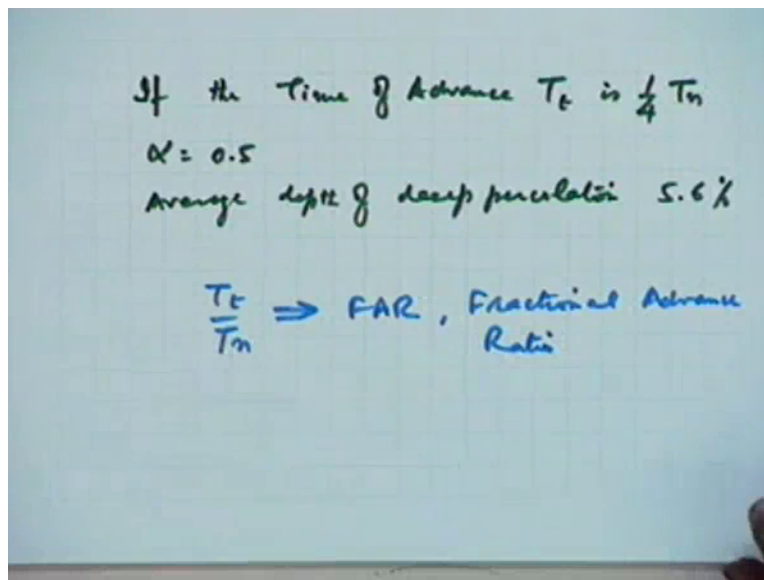 If the Time of Advance Tt is 1/4 Tn
α = 0.5
Average depth of deep percolation 5.6%
Tt/Tn ⇒ FAR, Fractional Advance
Ratio